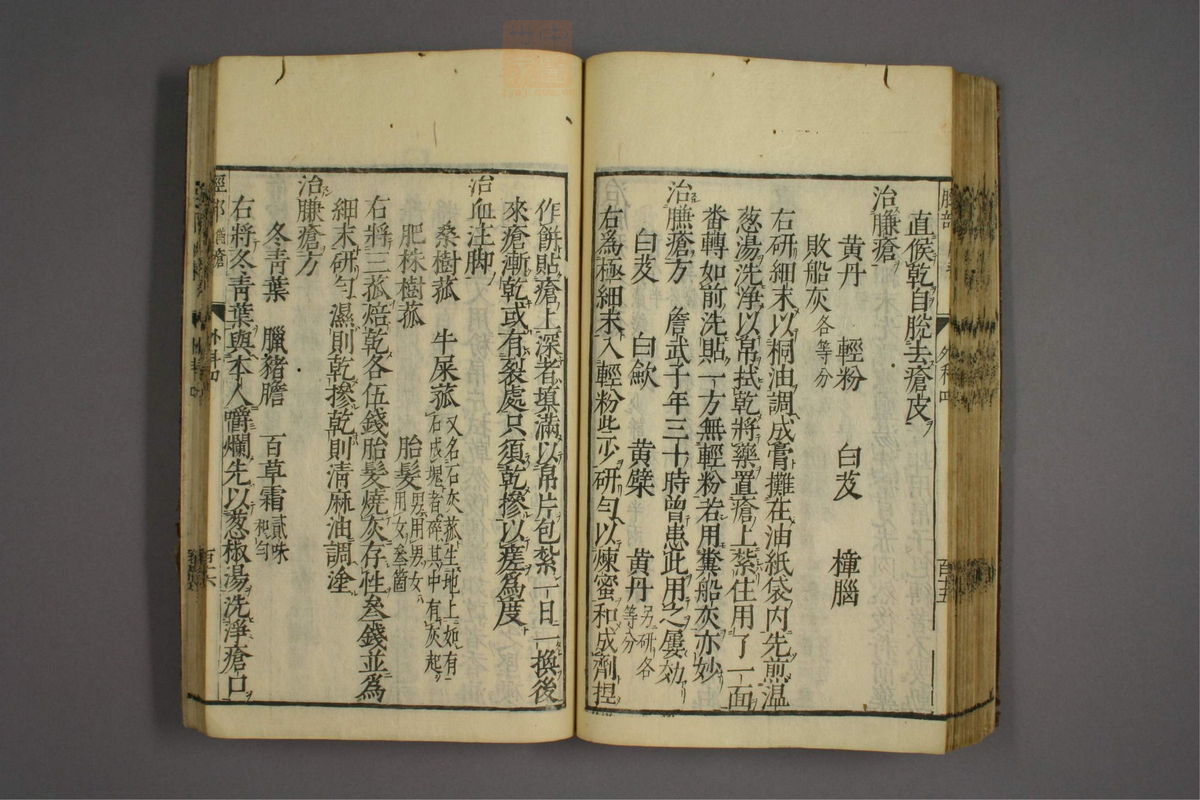 直候乾自脫去瘡皮
治臁瘡
黃丹 輕粉 白芨 樟腦
敗船灰各等分
右研細末以桐油調成膏攤在油紙袋內先煎溫
葱湯洗淨以帛拭乾將藥置瘡上紮住用了一面
番轉如前洗貼一方無輕粉若用糞船灰亦妙
治臁瘡方 詹武子年三十時曾患此用之屢効
白芨 白歛 黃檗 黃丹另研各等分
右為極細末入輕粉些少研勻以煉蜜和成劑捏
作餅貼瘡上深者填滿以帛片包紮一日一換後
來瘡漸乾或有裂處只須乾摻以瘥為度
治血注脚
桑樹菰 牛屎菰又名石灰菰生地上如有石成塊者碎其中有灰起
肥株樹菰 胎髮男用男女用女叁箇
右將三菰焙乾各伍錢胎髮燒灰存性叁錢並為
細末研勻濕則乾摻乾則清麻油調塗
治臁瘡方
冬青葉 臘豬膽 百草霜貳味和勻
右將冬青葉與本人嚼爛先以葱椒湯洗淨瘡口
外科四
百五
外科四
百六